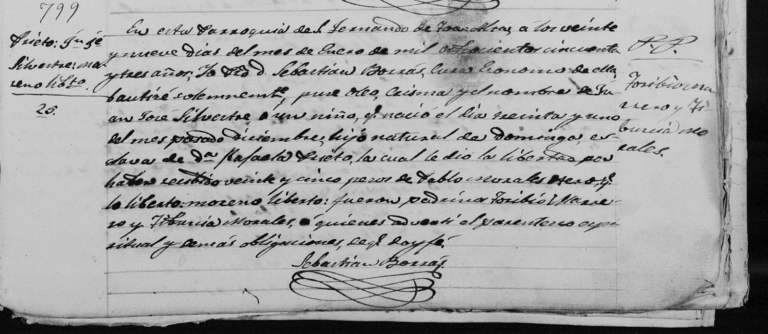 799
Prieto: Jn Jé
Silvestre, mo
reno libto.
25.
En esta Parroquia de S. Fernando de a los veinte
y nueve dias del mes de Enero de mil ochocientos cincuenta
y tres años, Yo Pbo. D. Sebastian Borrás, Cura Economo de ella
bautisé solemnemte, puse Oleo, Crisma y el nombre de Ju
an José Silvestre á un niño, q. nació el dia treinta y uno
del mes pasado Diciembre, hijo natural de Dominga, es
clava de Da. Rafaela Prieto, la cual le dio la libertad por
haber recibido veinte y cinco pesos de Pablo Morales
lo liberto, moreno liberto: fueron padrinos Toribio Marre
ro y Tiburcia Morales, á quienes adverti el parentesco espi
ritual y demás obligaciones, de q. doy fé.
Sebastian Borrás
P.P.
Toribio Ma
rrero y Ti
burcia Mo
rales.